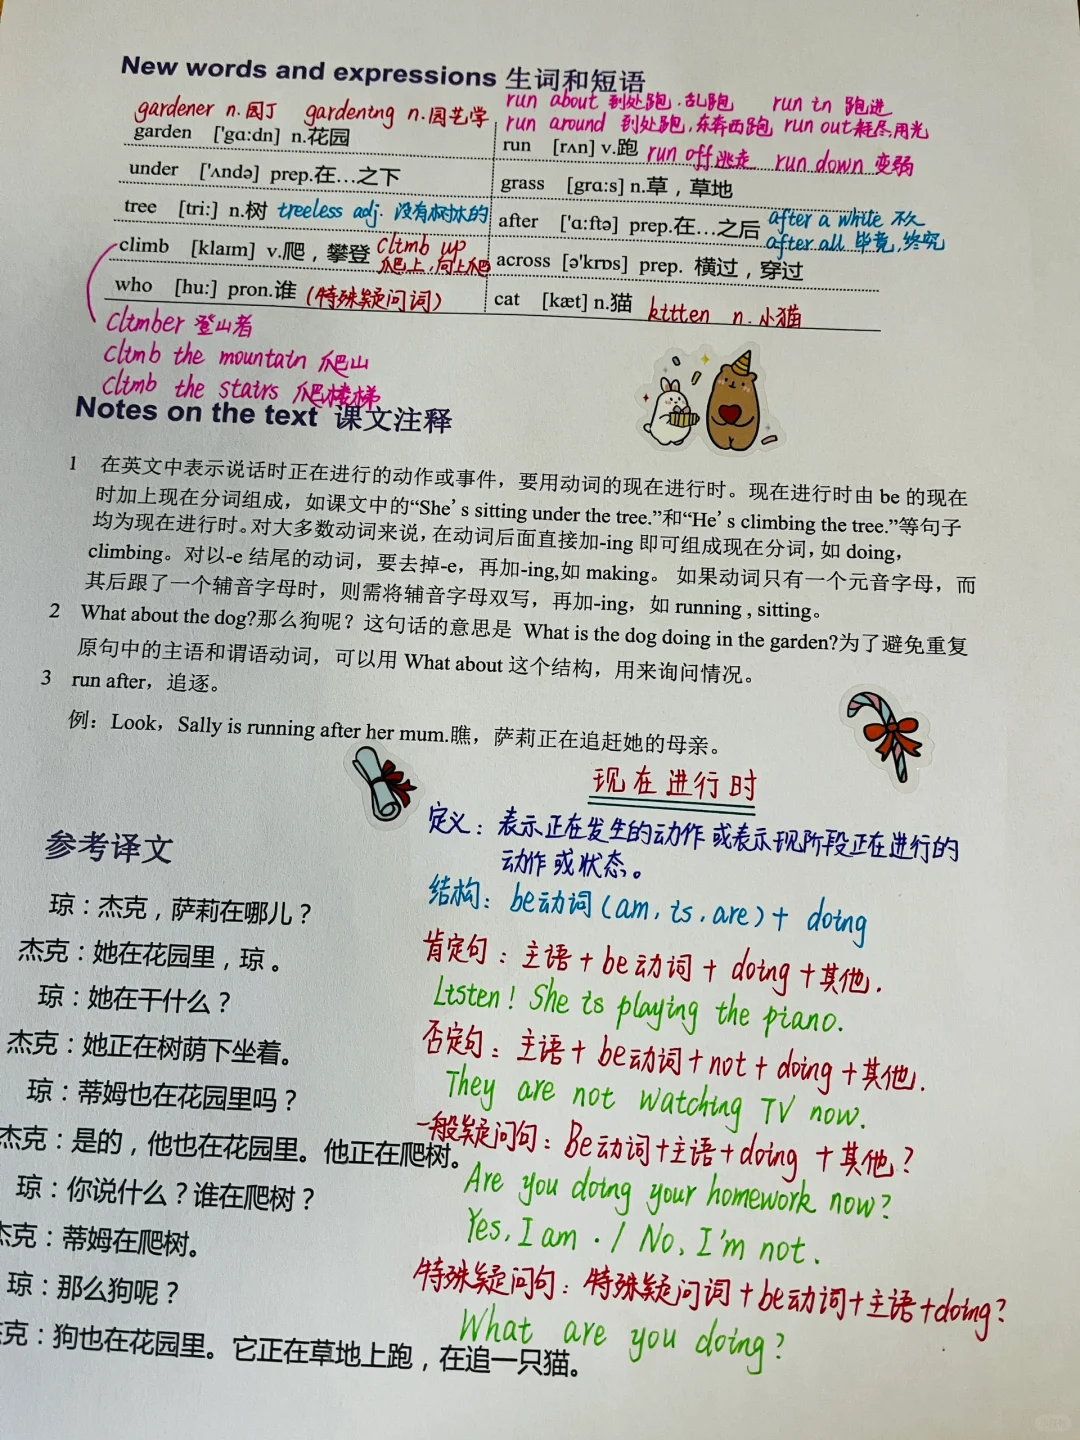 New words and expressions 生词和短语
gardener n.园丁 gardening n.园艺学
run about 到处跑.乱跑 run in 跑进
run around 到处跑,东奔西跑 run out 耗尽,用光
garden ['gɑ:dn] n.花园
run [rʌn] v.跑 run off 逃走 run down 变弱
under ['ʌndə] prep.在…之下
grass [grɑ:s] n.草，草地
tree [tri:] n.树 treeless adj. 没有树木的
after ['ɑ:ftə] prep.在…之后 after a while 不久
after all 毕竟,终究
climb [klaɪm] v.爬，攀登 climb up
爬上,向上爬
across [ə'krɒs] prep. 横过，穿过
who [hu:] pron.谁 (特殊疑问词)
cat [kæt] n.猫 kitten n.小猫
climber 登山者
climb the mountain 爬山
climb the stairs 爬楼梯
Notes on the text 课文注释
1 在英文中表示说话时正在进行的动作或事件，要用动词的现在进行时。现在进行时由 be 的现在
时加上现在分词组成，如课文中的“She’s sitting under the tree.”和“He’s climbing the tree.”等句子
均为现在进行时。对大多数动词来说，在动词后面直接加-ing 即可组成现在分词，如 doing，
climbing。对以-e 结尾的动词，要去掉-e，再加-ing,如 making。 如果动词只有一个元音字母，而
其后跟了一个辅音字母时，则需将辅音字母双写，再加-ing，如 running , sitting。
2 What about the dog?那么狗呢？这句话的意思是 What is the dog doing in the garden?为了避免重复
原句中的主语和谓语动词，可以用 What about 这个结构，用来询问情况。
3 run after，追逐。
例：Look，Sally is running after her mum.瞧，萨莉正在追赶她的母亲。
现在进行时
定义：表示正在发生的动作或表示现阶段正在进行的
动作或状态。
结构：be动词(am,is,are)+ doing
肯定句：主语+be动词+doing+其他.
Listen! She is playing the piano.
否定句：主语+be动词+not+doing+其他.
They are not watching TV now.
一般疑问句：Be动词+主语+doing+其他?
Are you doing your homework now?
Yes, I am. / No, I'm not.
特殊疑问句：特殊疑问词+be动词+主语+doing?
What are you doing?
参考译文
琼：杰克，萨莉在哪儿？
杰克：她在花园里，琼 。
琼：她在干什么？
杰克：她正在树荫下坐着。
琼：蒂姆也在花园里吗？
杰克：是的，他也在花园里。他正在爬树。
琼：你说什么？谁在爬树？
杰克：蒂姆在爬树。
琼：那么狗呢？
克：狗也在花园里。它正在草地上跑，在追一只猫。